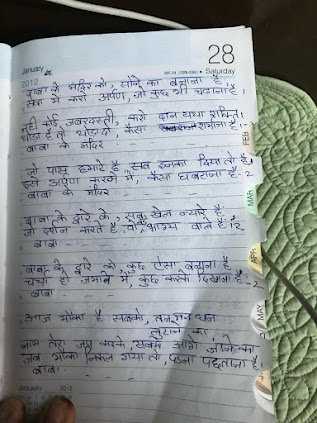 January
2012
28
WK 04 (028-338) • Saturday
बाबा के मंदिर को, सोने का बनाना है।
सेवा में करो अर्पण, जो कुछ भी चढ़ाना है।
नहीं कोई जबरदस्ती, करो दान यथा शक्ति।
थोड़ा है तो थोड़ा दो कैसा शर्माना है-2
बाबा के मंदिर
जो पास हमारे है, सब इनका दिया तो है
इसे अर्पण करने में, कैसा घबराना है-2
बाबा के मंदिर
बाबा के द्वारे के, सब खेल न्यारे हैं
जो दर्शन करते हैं, वो भाग्य वाले हैं-2
बाबा
बाबा के द्वारे को, कुछ ऐसा बनाना है
चर्चा हो जमाने में, कुछ करके दिखाना है-2
बाबा
आज मौका है सबको, तन मन धन
लुटाने का,
नाम तेरा जप करके, सबसे आगे जाने का
जब मौका निकल गया तो, पड़ना पछताना है।
बाबा
FEB
MAR
APR
MAY
January 2012